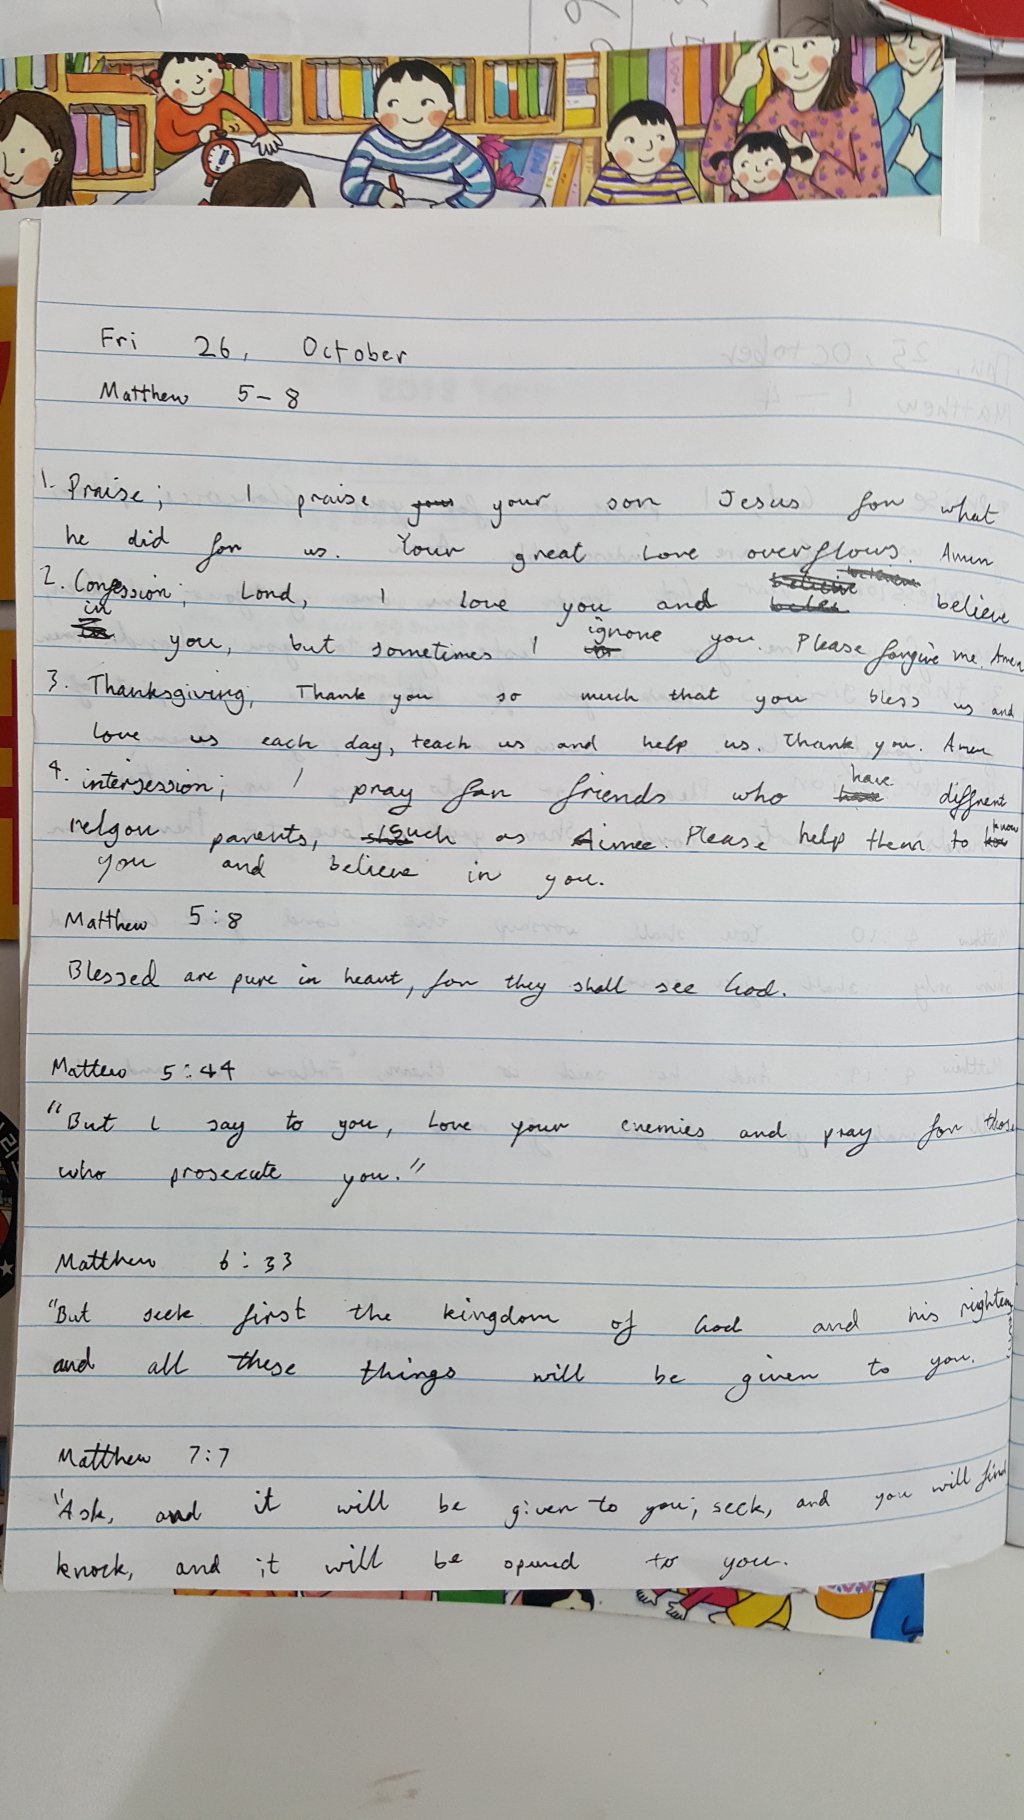 Fri 26, October
Matthew 5-8
1. Praise; I praise your son Jesus for what
he did for us. Your great love overflows. Amen
2. Confession; Lord, I love you and believe
in you, but sometimes I ignore you. Please forgive me. Amen
3. Thanksgiving, Thank you so much that you bless us and
love us each day, teach us and help us. Thank you. Amen
4. intersession; I pray for friends who have diffrent
relgou parents, such as Aimee. Please help them to know
you and believe in you.
Matthew 5:8
Blessed are pure in heart, for they shall see God.
Mattew 5:44
"But I say to you, Love your enemies and pray for those
who prosecute you."
Matthew 6:33
"But seek first the kingdom of God and his
and all these things will be given to you.
Matthew 7:7
"Ask, and it will be given to you; seek, and you will find
knock, and it will be opened to you.